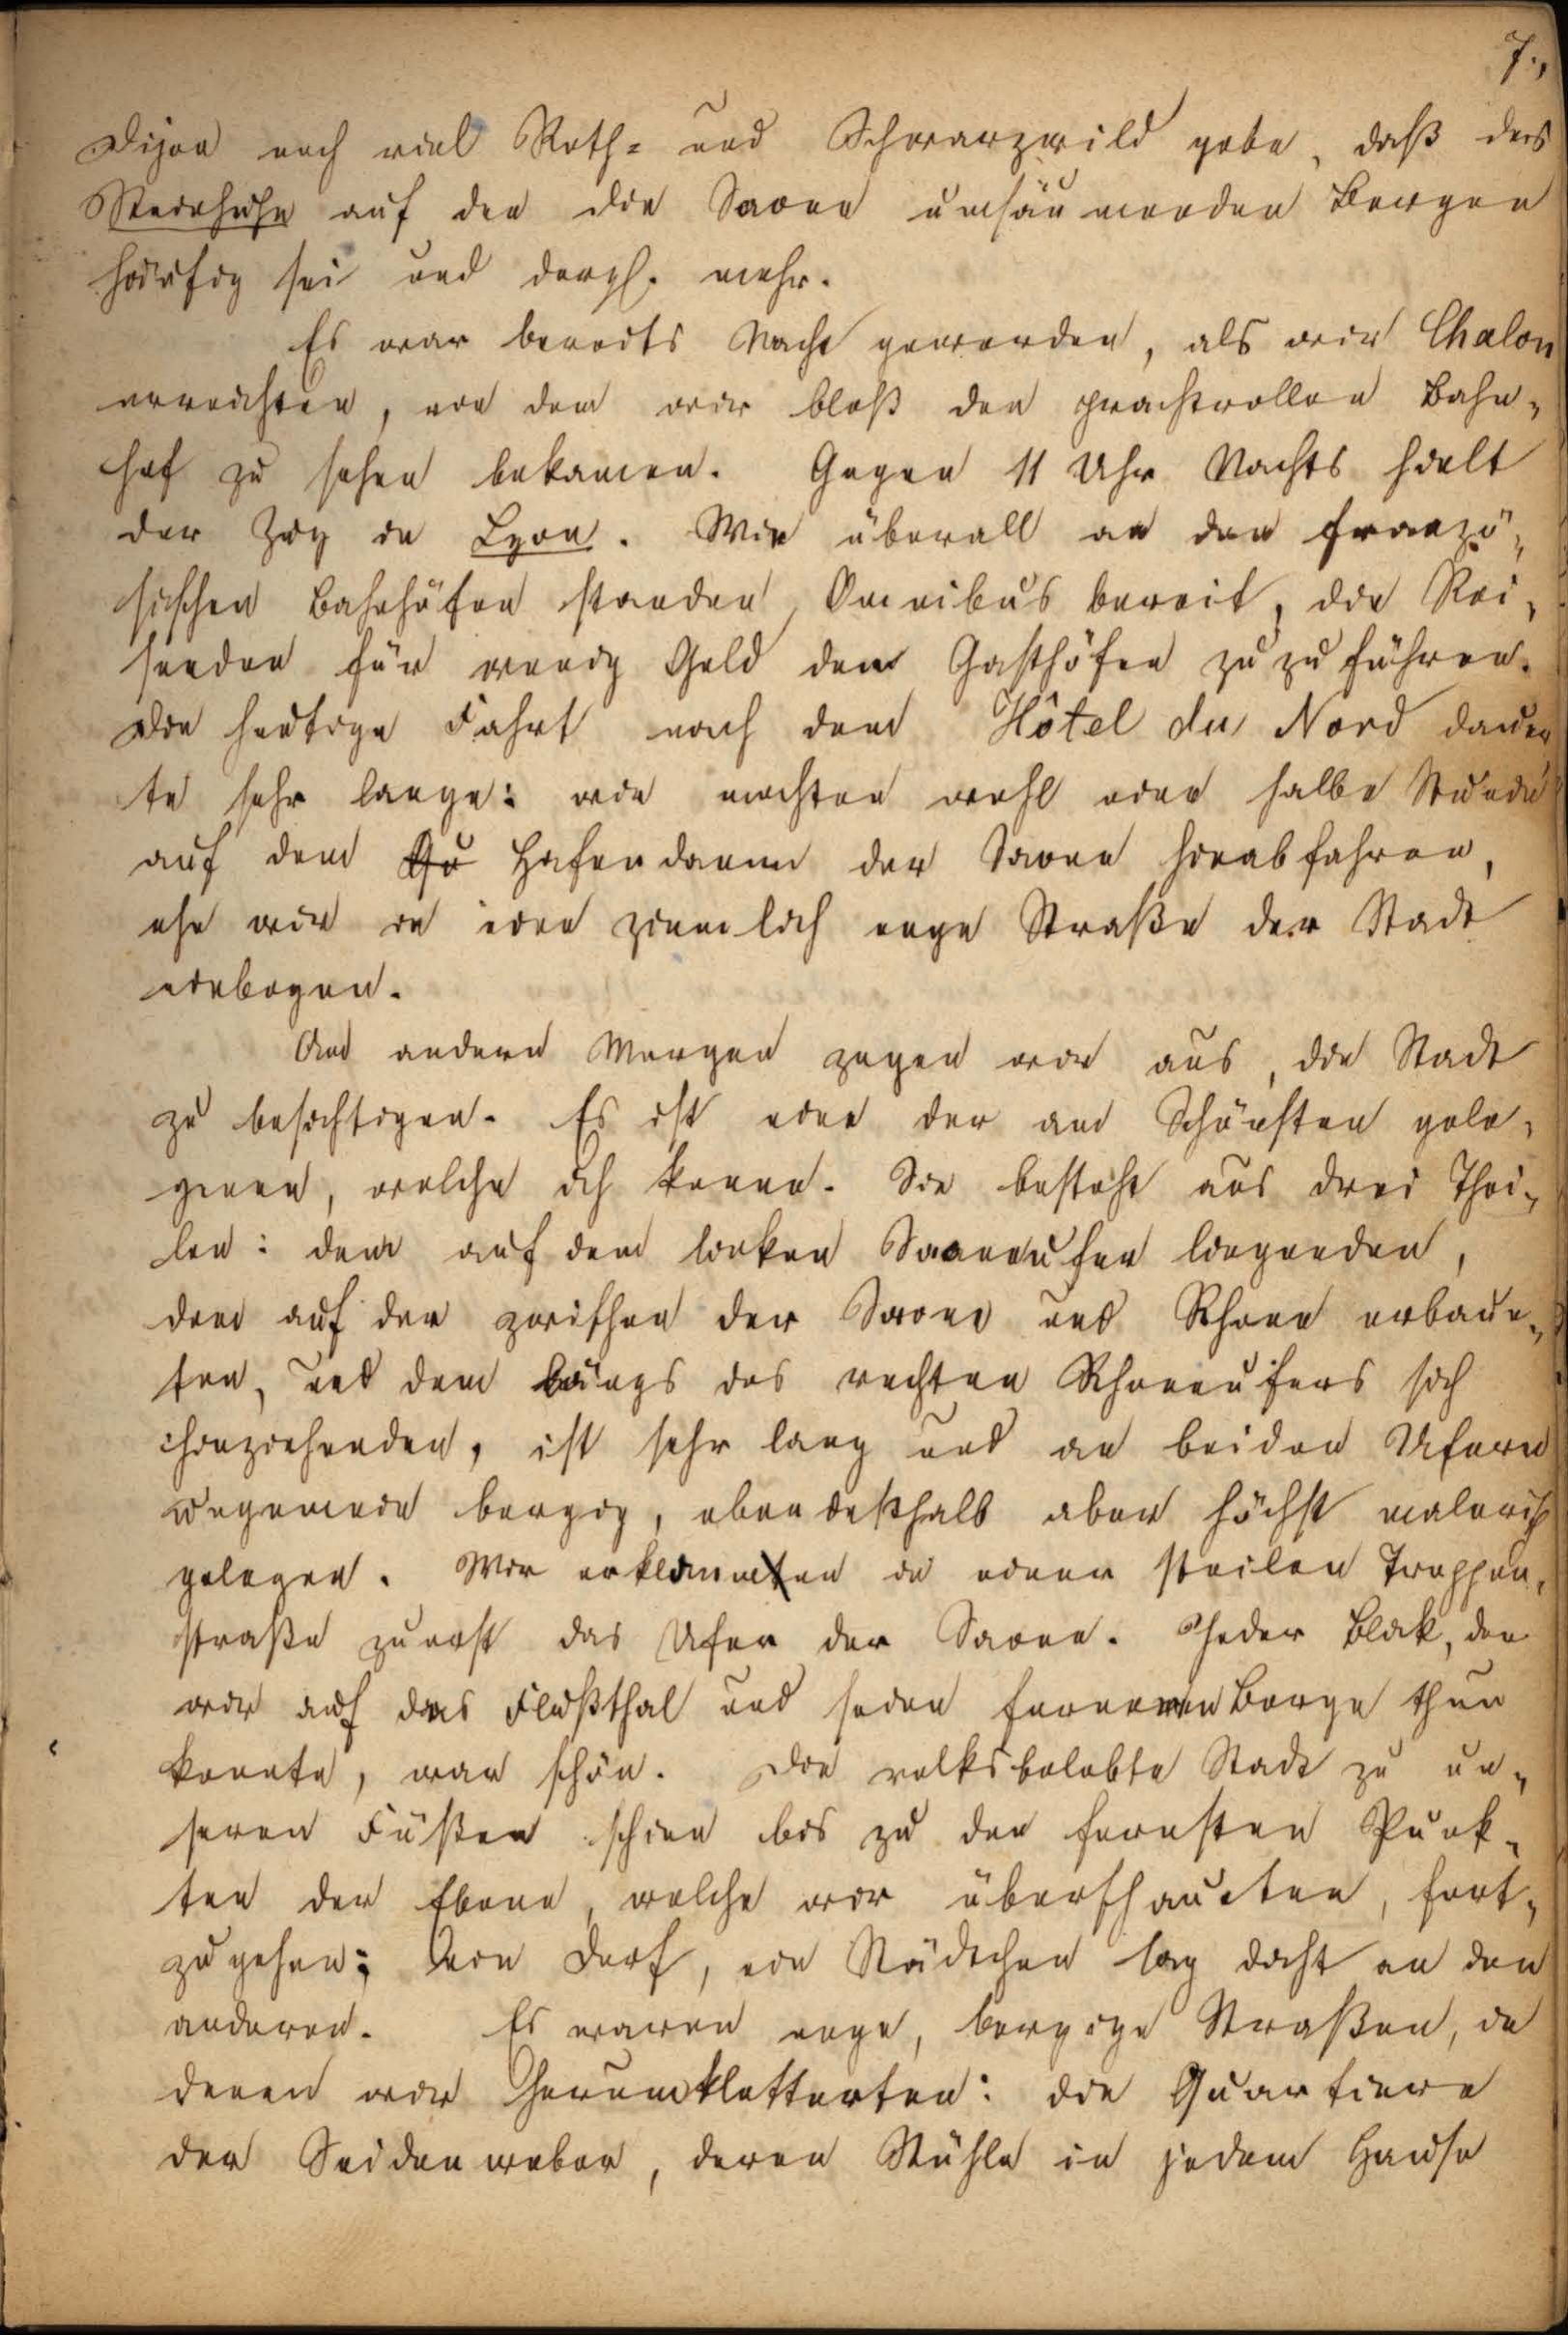 7.,
Dijon noch viel Roth- und Schwarzwild gebe, daß das
Steinhuhn auf den die Saone umsäumenden Bergen
häufig sei und dergl. mehr.
Es war bereits Nacht geworden, als wir Chalon
erreichten, von dem wir bloß den prachtvollen Bahn-
hof zu sehen bekamen. Gegen 11 Uhr Nachts hielt
der Zug in Lyon. Wie überall an den franzö-
sischen Bahnhöfen standen Omnibus bereit, die Rei-
senden für wenig Geld den Gasthöfen zu zu führen.
Die heutige Fahrt nach dem Hôtel du Nord dauer
te sehr lange: wir mochten wohl eine halbe Stunde
auf dem Qu Hafendamm der Saone hinabfahren,
ehe wir in eine ziemlich enge Straße der Stadt
einbogen.
Am andern Morgen zogen wir aus, die Stadt
zu besichtigen. Es ist eine der am Schönsten gele-
genen, welche ich kenne. Sie besteht aus drei Thei-
len: dem auf dem linken Saoneufer liegenden,
dem auf der zwischen der Saone und Rhone erbau-
ten, und dem längs des rechten Rhoneufers sich
hinziehenden, ist sehr lang und an beiden Ufern
ungemein bergig, eben deßhalb aber höchst malerisch
gelegen. Wir erklommen in einer steilen Treppen-
straße zuerst das Ufer der Saone. Jeder Blick, den
wir auf das Flußthal und seine ferneren Berge thun
konnte, war schön. Die volksbelebte Stadt zu un-
seren Füßen schien bis zu den fernsten Punk-
ten der Ebene, welche wir überschauten, fort-
zugehen; ein Dorf, ein Städtchen lag dicht an den
anderen. Es waren enge, bergige Straßen, in
denen wir herumkletterten: die Quartiere
der Seidenweber, deren Stühle in jedem Hause